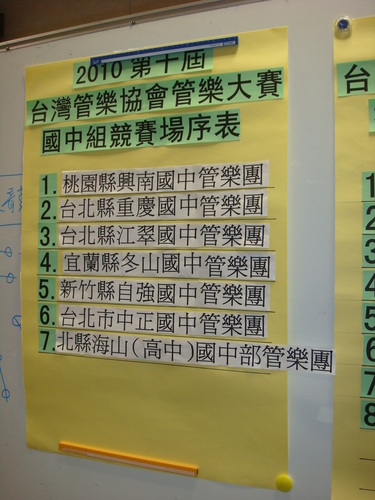 2010 第十屆
台灣管樂協會管樂大賽
國中組競賽場序表
1. 桃園縣興南國中管樂團
2. 台北縣重慶國中管樂團
3. 台北縣江翠國中管樂團
4. 宜蘭縣冬山國中管樂團
5. 新竹縣自強國中管樂團
6. 台北市中正國中管樂團
7. 北縣海山(高中)國中部管樂團
台
1
2
3
4
5
6
7
8